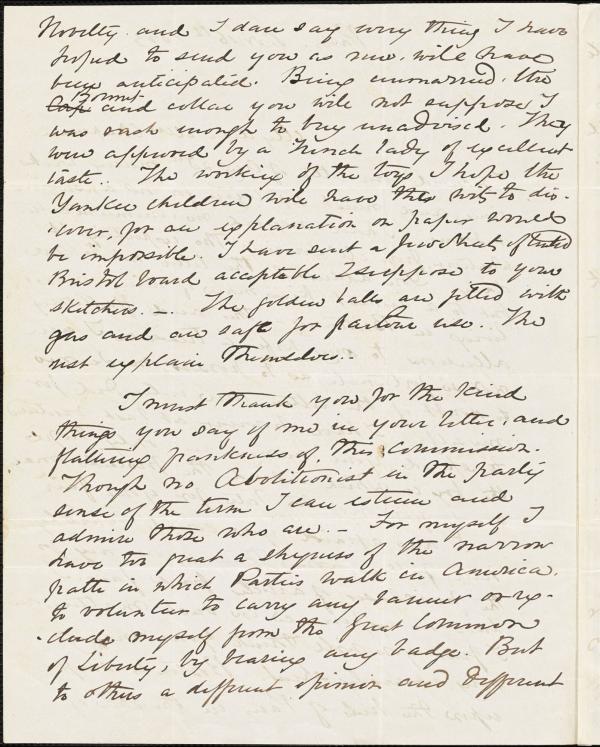 Novelty and I dare say every thing I have
hoped to send you as new, will have
been anticipated. Being unmarried, the
Bonnet
Cap and collar you will not suppose I
was rash enough to buy unadvised. They
were approved by a French lady of excellent
taste. The working of the toys, I hope the
Yankee children will have the wits to dis-
cover, for an explanation on paper would
be impossible. I have sent a few sheets of tinted
Bristol board acceptable I suppose to your
sketchers. — The golden balls are filled with
gas and are safe for parlour use. The
rest explain themselves..
I must thank you for the kind
things you say of me in your letter, and
flattering frankness of this commission.
Though no Abolitionist in the party
sense of the term I can esteem and
admire those who are. — For myself I
have too great a shyness of the narrow
path in which Parties walk in America,
to volunteer to carry any banner or ex-
clude myself from the Great Common
of Liberty, by bearing any badge. But
to others a different opinion and different